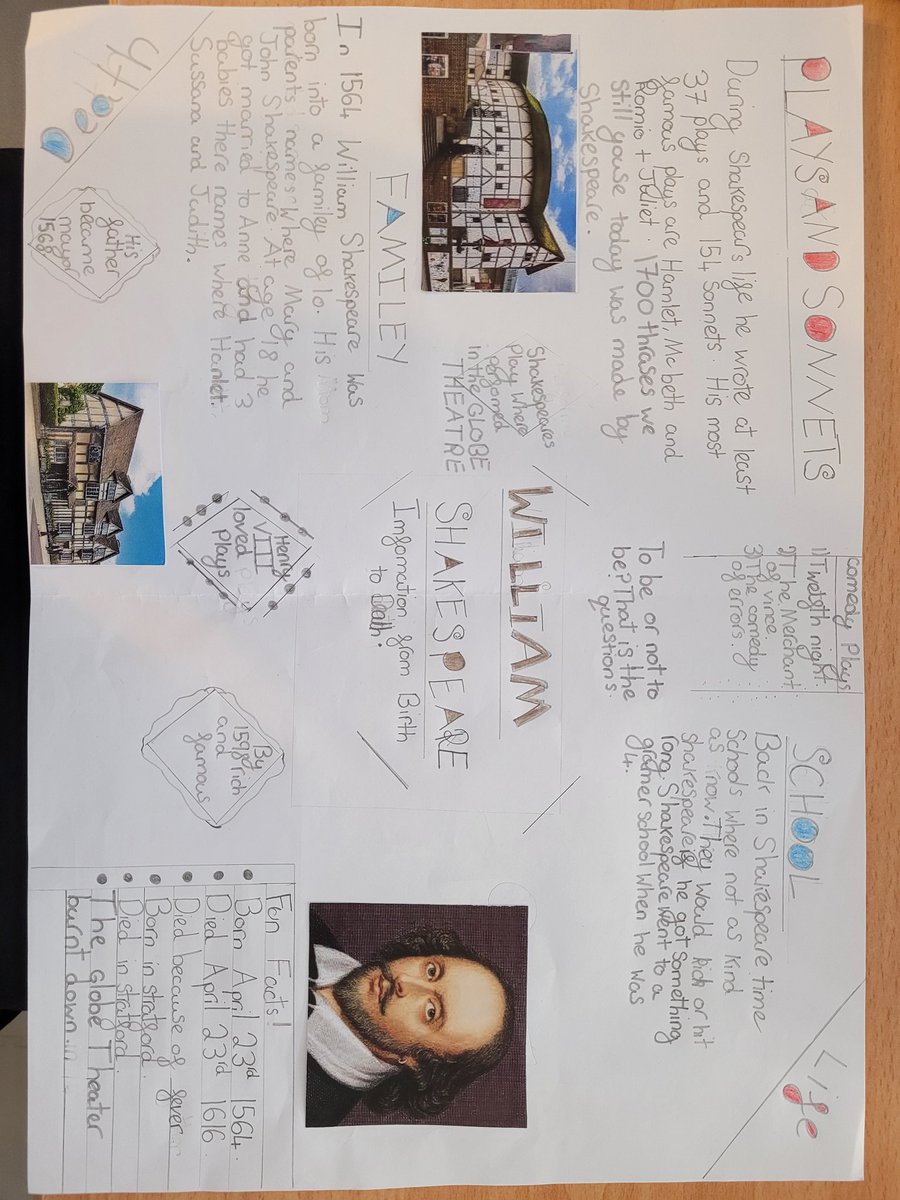 PLAYS AND SONNETS
During Shakespears life he wrote at least
37 plays and 154 Sonnets. His most
famous plays are Hamlet, Mcbeth and
Romio + Juliet. 1700 thrases we
still youse today was made by
Shakespeare.
comedy Plays
1) Twelgth night.
2) The Merchant
of vince.
3) The comedy
of errors.
SCHOOL
Back in Shakespeare time
Schools where not as kind
as now. They would kick or hit
shakespeare ig he got something
rong. Shakespeare went to a
gramer school when he was
4.
Life
To be or not to
be? That is the
questions.
Shakespeares
Play where
performed
in the GLOBE
THEATRE
WILLIAM
SHAKESPEARE
Imformation from Birth
to Death.
FAMILEY
In 1564 William Shakespeare was
born into a familey of 10. His
parents names where Mary and
John Shakespeare. At age 18 he
got married to Anne and had 3
babies there names where Hamlet.
Sussana and Judith.
His
gather
became
mayor
1568
Henry
VIII
loved
Plays
By
1598 rich
and
famous
Fun Facts!
Born April 23rd 1564.
Died April 23rd 1616
Died because of fever
Born in stratford.
Died in stratford.
The Globe Theater
burnt down